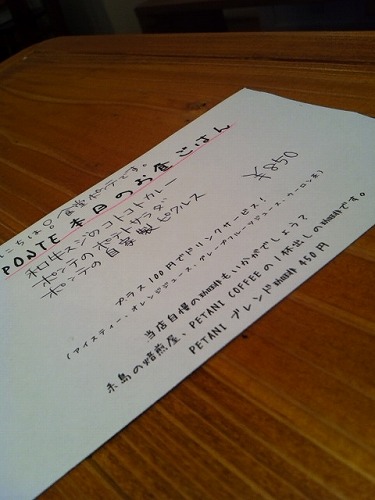 にちは。食堂ポンテです。
PONTE 本日のお昼ごはん
和牛スジのコトコトカレー
ポンテのポテトサラダ
ポンテの自家製ピクルス
¥850
プラス100円でドリンクサービス!
(アイスティー、オレンジジュース、グレープフルーツジュース、ウーロン茶)
当店自慢の珈琲もいかがでしょう?
糸島の焙煎屋、PETANI COFFEEの1杯出しの珈琲です。
PETANI ブレンド珈琲 450円